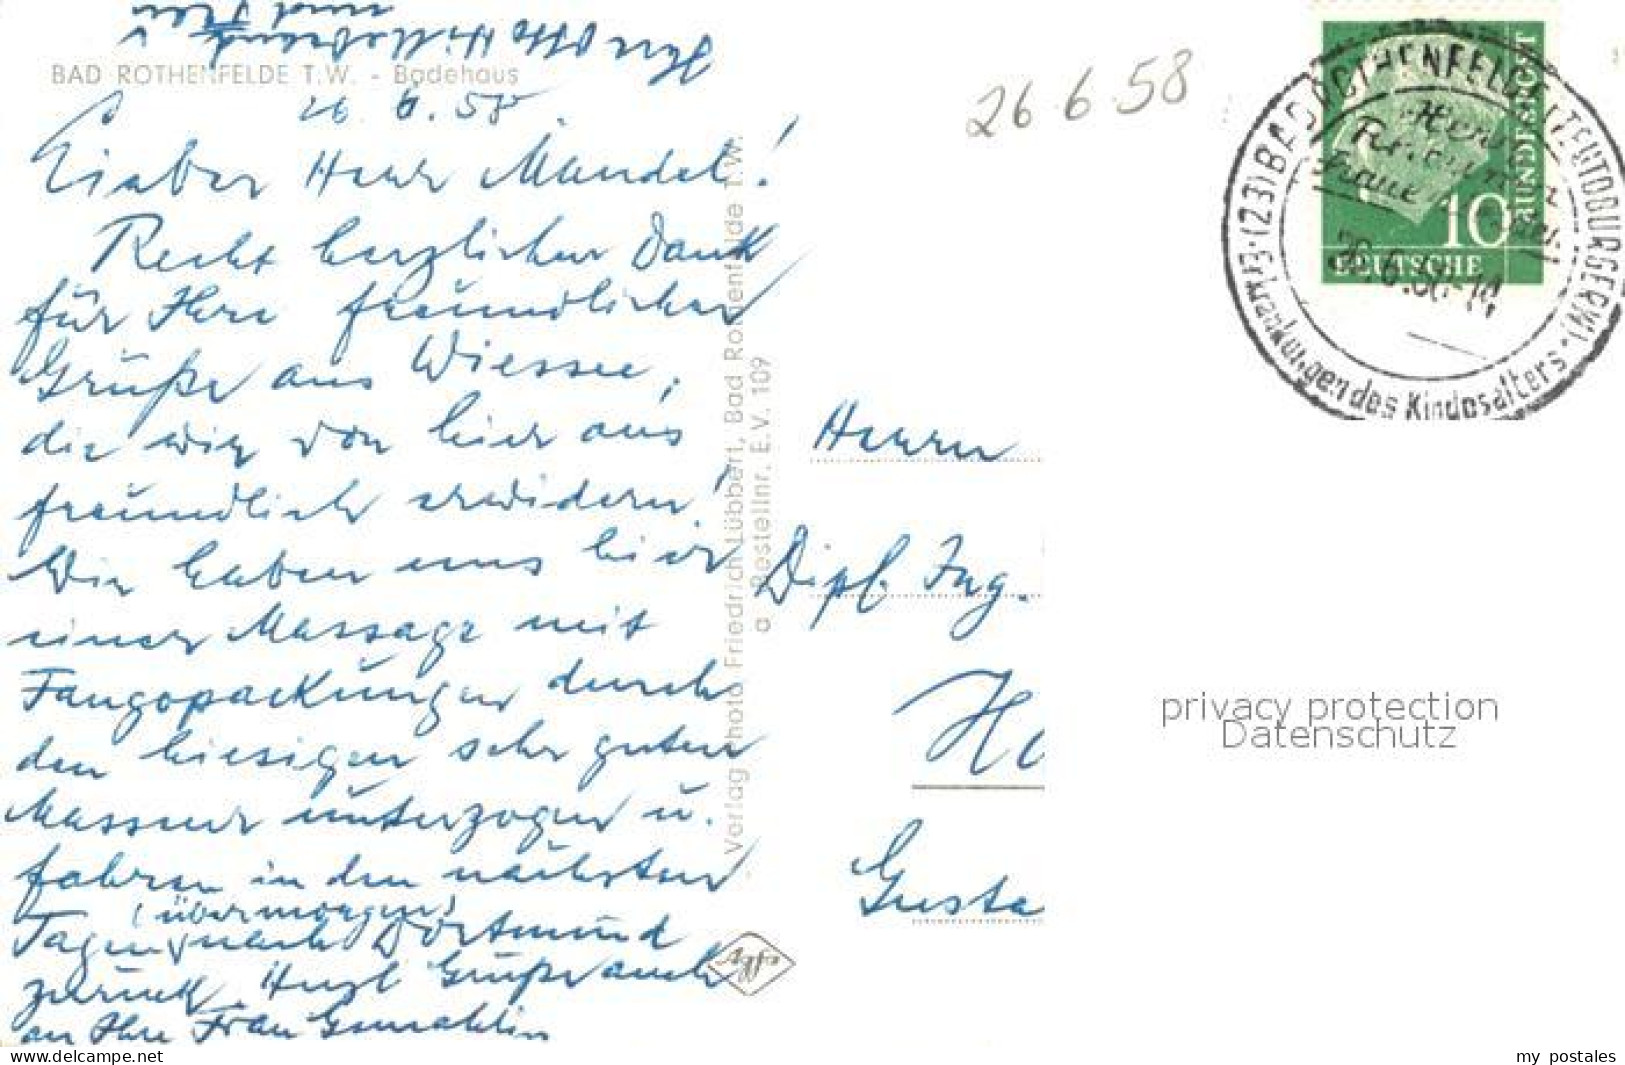 Ihr Otto Hillebrand
und Frau
BAD ROTHENFELDE T.W. - Badehaus
26. 6. 58
Lieber Herr Mandel!
Recht herzlichen Dank
für Ihre freundlichen
Grüße aus Wiessee,
die wir von hier aus
freundlich erwidern!
Wir haben uns hier
einer Massage mit
Fangopackungen durch
den hiesigen sehr guten
Masseur unterzogen u.
fahren in den nächsten
(übermorgen)
Tagen nach Dortmund
zurück. Herzl Grüße auch
an Ihre Frau Gemahlin
Verlag Photo Friedrich Lübbert, Bad Rothenfelde T.W.
a Bestellnr. E.V. 109
Agfa
26 6 58
(23) BAD ROTHENFELDE (TEUTOBURGERW).
Herz
Rheuma
Frauen
Erkrankungen des Kindesalters
26.6.58-14
DEUTSCHE
BUNDESPOST
10
Herrn
Dipl. Ing.
H
Gusta
privacy protection
Datenschutz
www.delcampe.net
my_postales